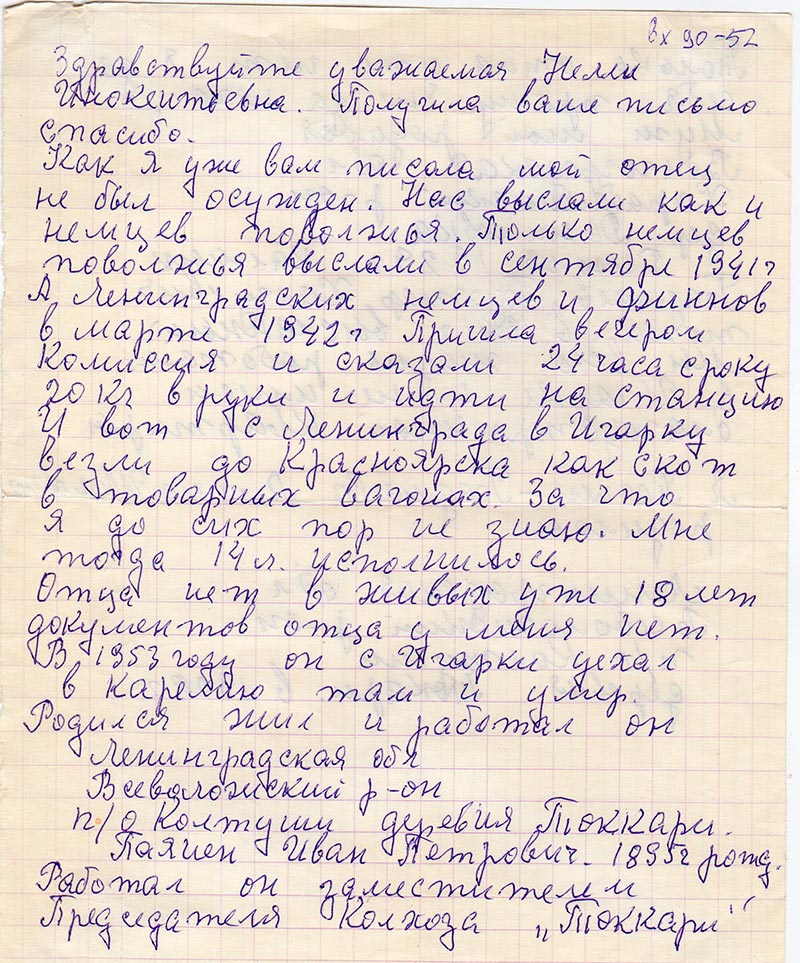 Вх 90-52
Здравствуйте уважаемая Нелли
Инокентьевна. Получила ваше письмо
спасибо.
Как я уже вам писала мой отец
не был осужден. Нас выслали как и
немцев поволжья. Только немцев
поволжья выслали в сентябре 1941г
А Ленинградских немцев и финнов
в марте 1942г Пришла вечером
комиссия и сказали 24 часа сроку
20 кг в руки и идти на станцию
И вот с Ленинграда в Игарку
везли до Красноярска как скот
в товарных вагонах. За что
я до сих пор не знаю. Мне
тогда 14 л. исполнилось.
Отца нет в живых уже 18 лет
документов отца у меня нет.
В 1953 году он с Игарки уехал
в Карелию там и умир.
Родился жил и работал он
Ленинградская обл
Всеволожский р-он
п/о Колтуши деревня Токкари.
Паяиен Иван Петрович. 1895г рожд.
Работал он заместителем
Председателя Колхоза „Токкари"